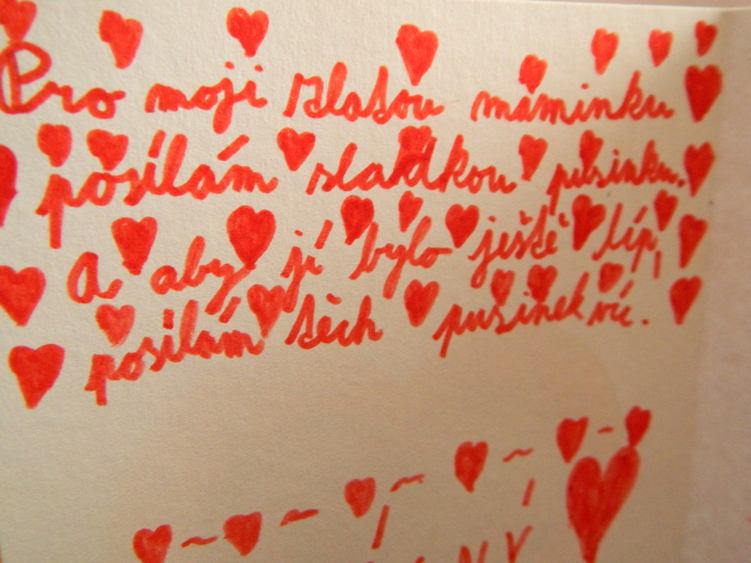 Pro moji zlatou maminku
posílám sladkou pusinku.
A aby jí bylo ještě líp,
posílám těch pusinek víc.